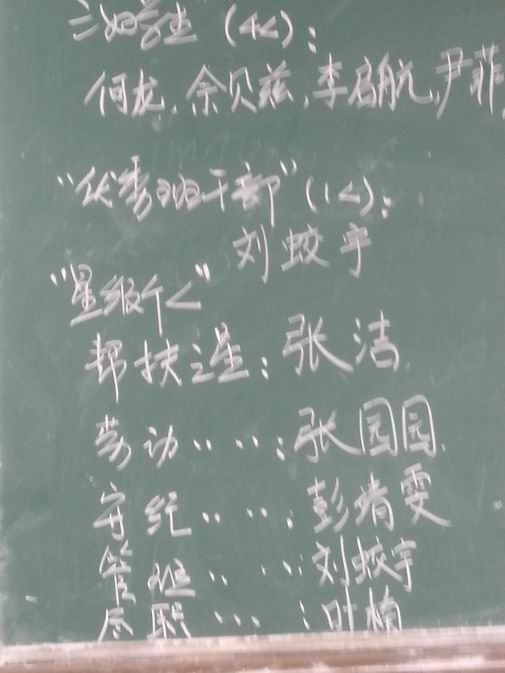 三好学生（4人）：
何龙、余贝兹、李启航、尹菲
“优秀班干部”（1人）：
刘蛟宇
“星级个人”
帮扶之星：张洁
劳动‥ ‥：张园园
守纪‥ ‥：彭靖雯
管班‥ ‥：刘蛟宇
尽职‥ ‥：叶楠